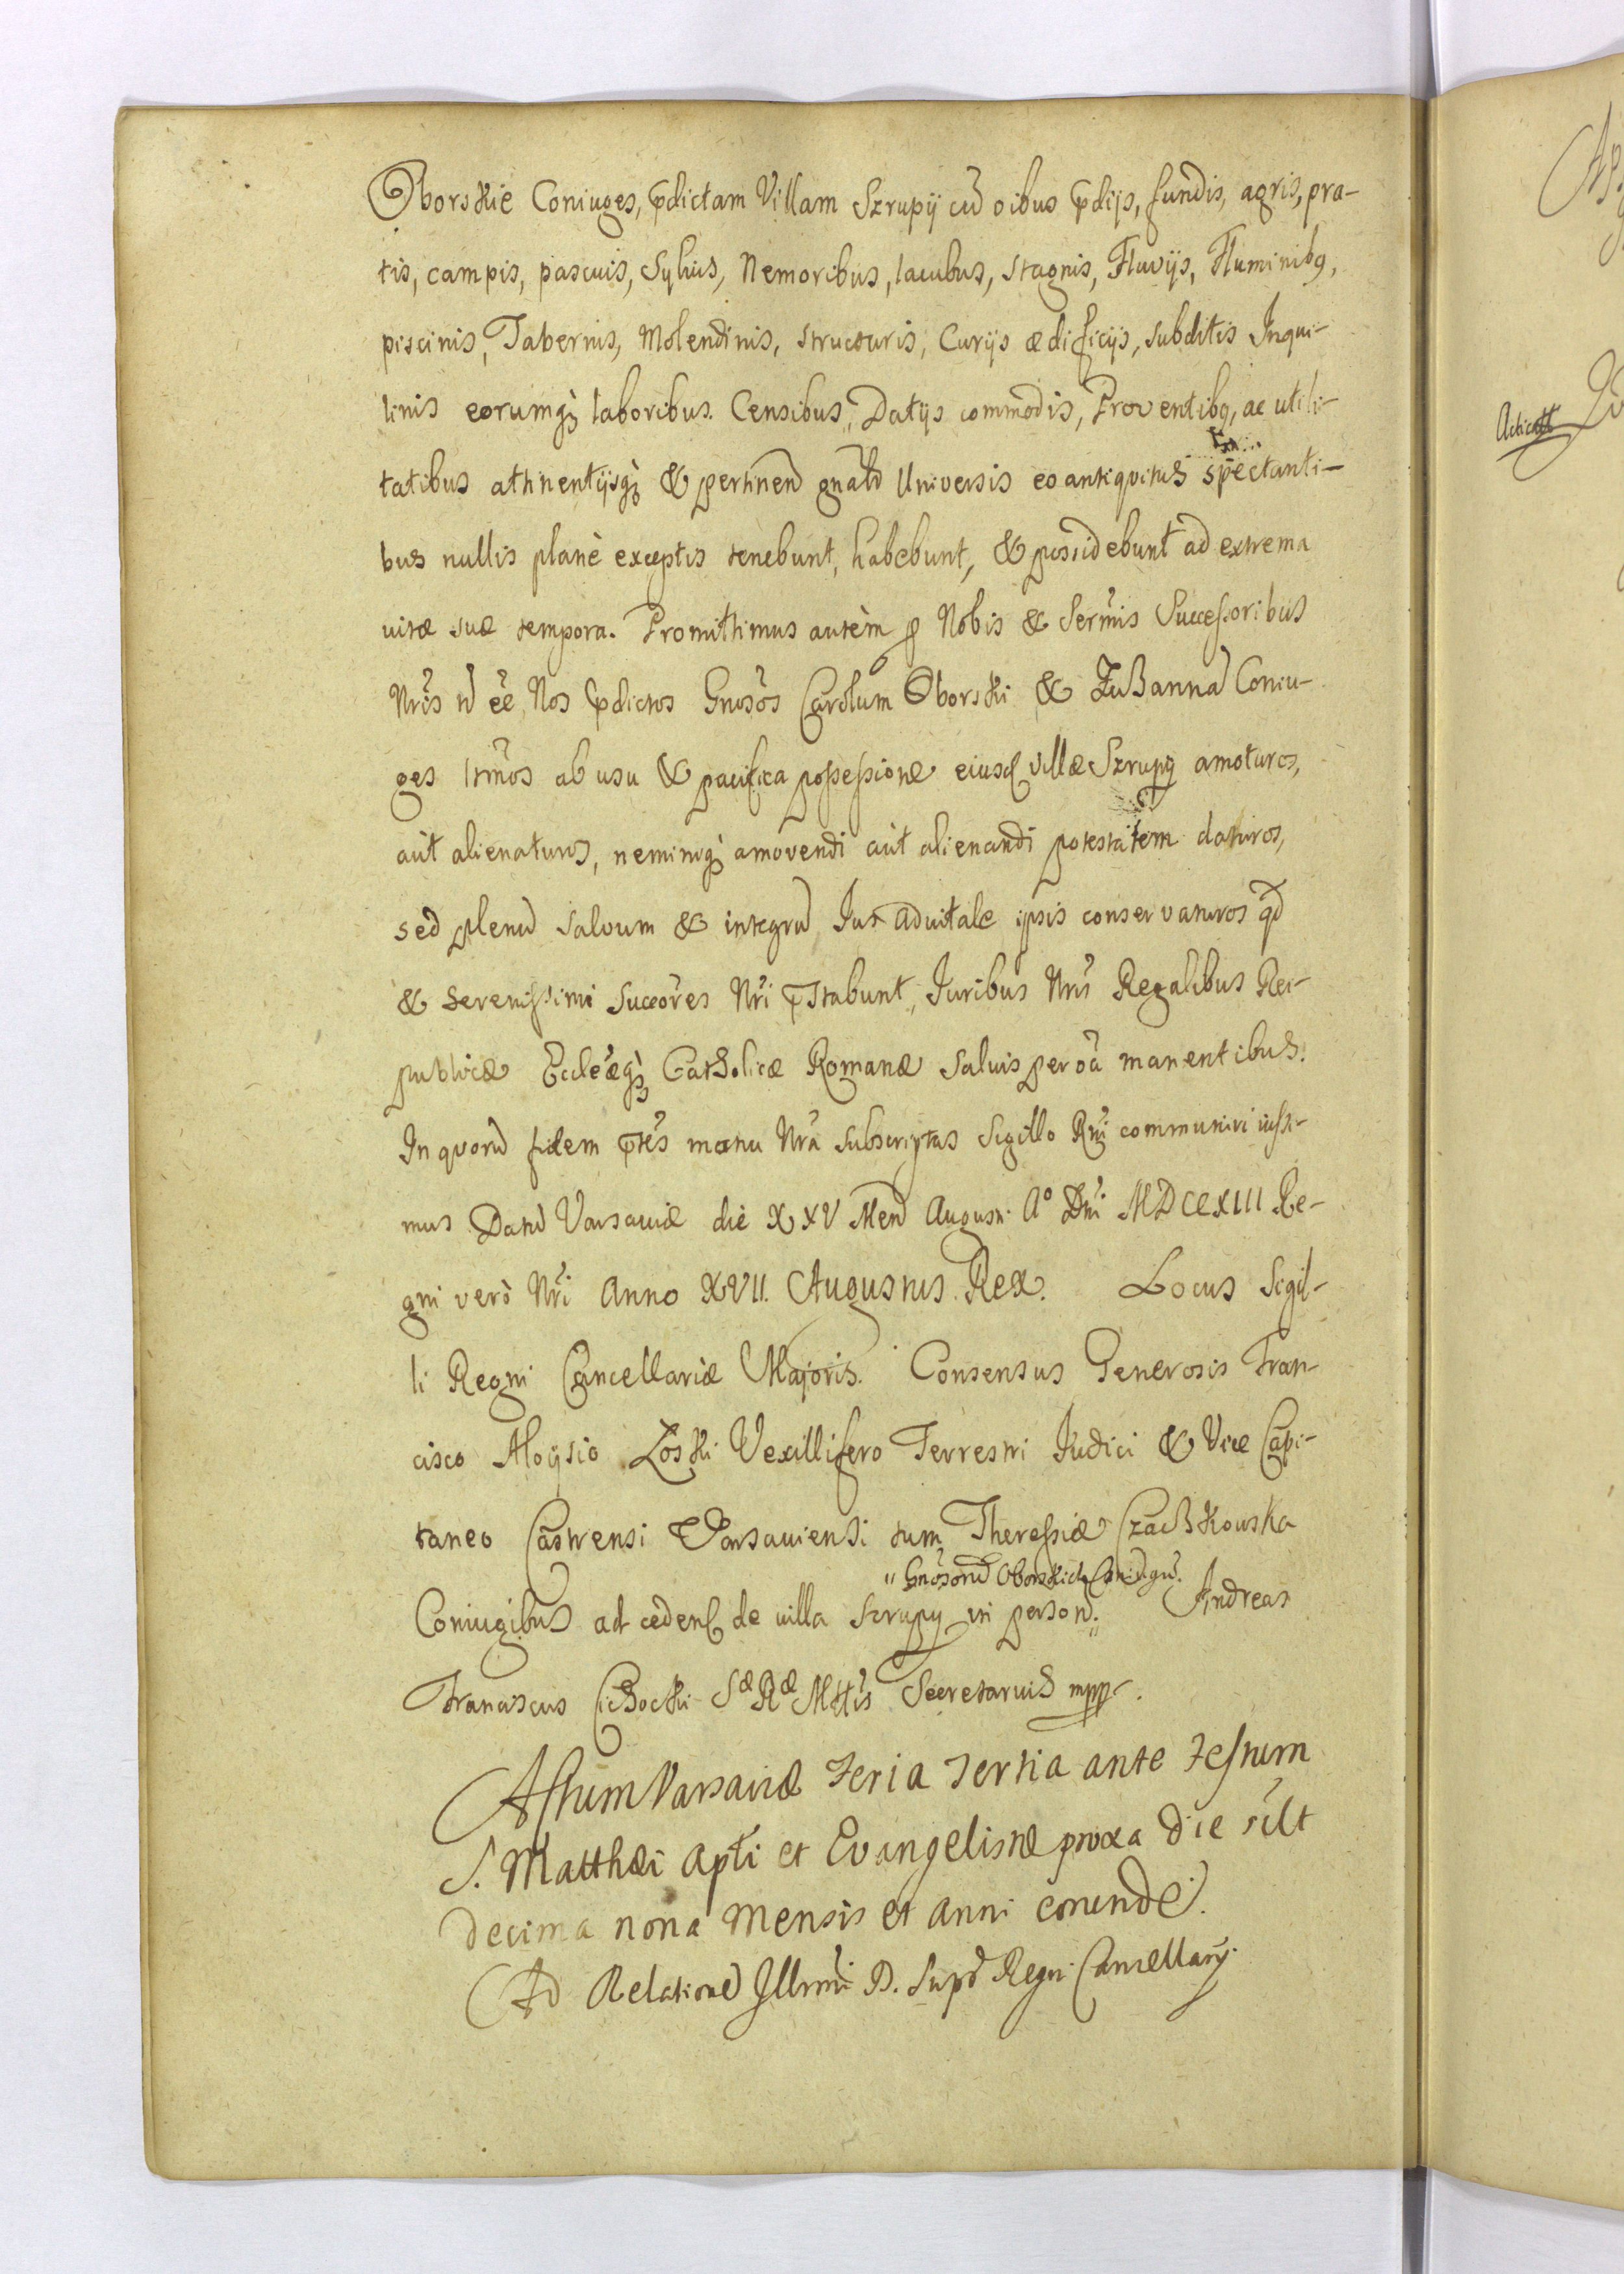 Oborskie Coniuges, p̄dictam Villam Szrupÿ cū oibus p̄dijs, fundis, agris, pra-
tis, campis, pascuis, Sylvis, Nemoribus, lacubus, stagnis, Fluvijs, Fluminibq,
piscinis, Tabernis, Molendinis, structuris, Curijs ædificijs, subditis Inqui-
linis eorumq̀ laboribus. Censibus, Datijs commodis, Proventibq, ac utili-
tatibus attinentijsq̀ & pertinen̄ gnalr̄ Universis eo antiquitus spectanti-
bus nullis planè exceptis tenebunt, habebunt, & possidebunt ad extrema
vitæ suæ tempora. Promittimus autèm p Nobis & Sermis Successoribus
Nris n̄ ēe Nos p̄dictos Gnosos Carolum Oborski & Zußannā Coniu-
ges Itmos ab usu & pacifica possessione eiusd villæ Szrupÿ amoturos,
aut alienaturos, neminiq̀ amovendi aut alienandi potestatem daturos,
sed plenū salvum & integrū Jus advitale ipsis conservaturos qd
& Serenissimi Succores Nri p̄stabunt, Juribus Nris Regalibus Rei-
publicæ Ecclæq̀ Catholicæ Romanæ salvis per oa manentibus.
In quorū fidem p̄tes manu Nra subscriptas Sigillo Rni communiri iussi-
mus Datū Varsaviæ die XXV Men̄ Augusti Aº Dni MDCCXIII Re-
gni verò Nri Anno XVII. Augustus Rex. Locus Sigil-
li Regni Cancellariæ Majoris. Consensus Generosis Fran-
cisco Aloysio Zoski Vexillifero Terrestri Judici & Vice Capi-
taneo Castrensi Varsaviensi tum Theressiæ Czaßkowska
"Gnosorū Oborskich Coniugū.
Coniugibus ad ceden̄ de villa Szrupy in person." Andreas
Franciscus Cichocki Sæ Ræ Mttis Secretarius mpp.
Actum Varsaviæ Feria Tertia ante Festum
S. Matthæi Apli et Evangelistæ proxa die sc̃ilt
decima nona Mensis et Anni eorunde.
Ad Relationē Illmi D. Supr̄ Regni Cancellarij.